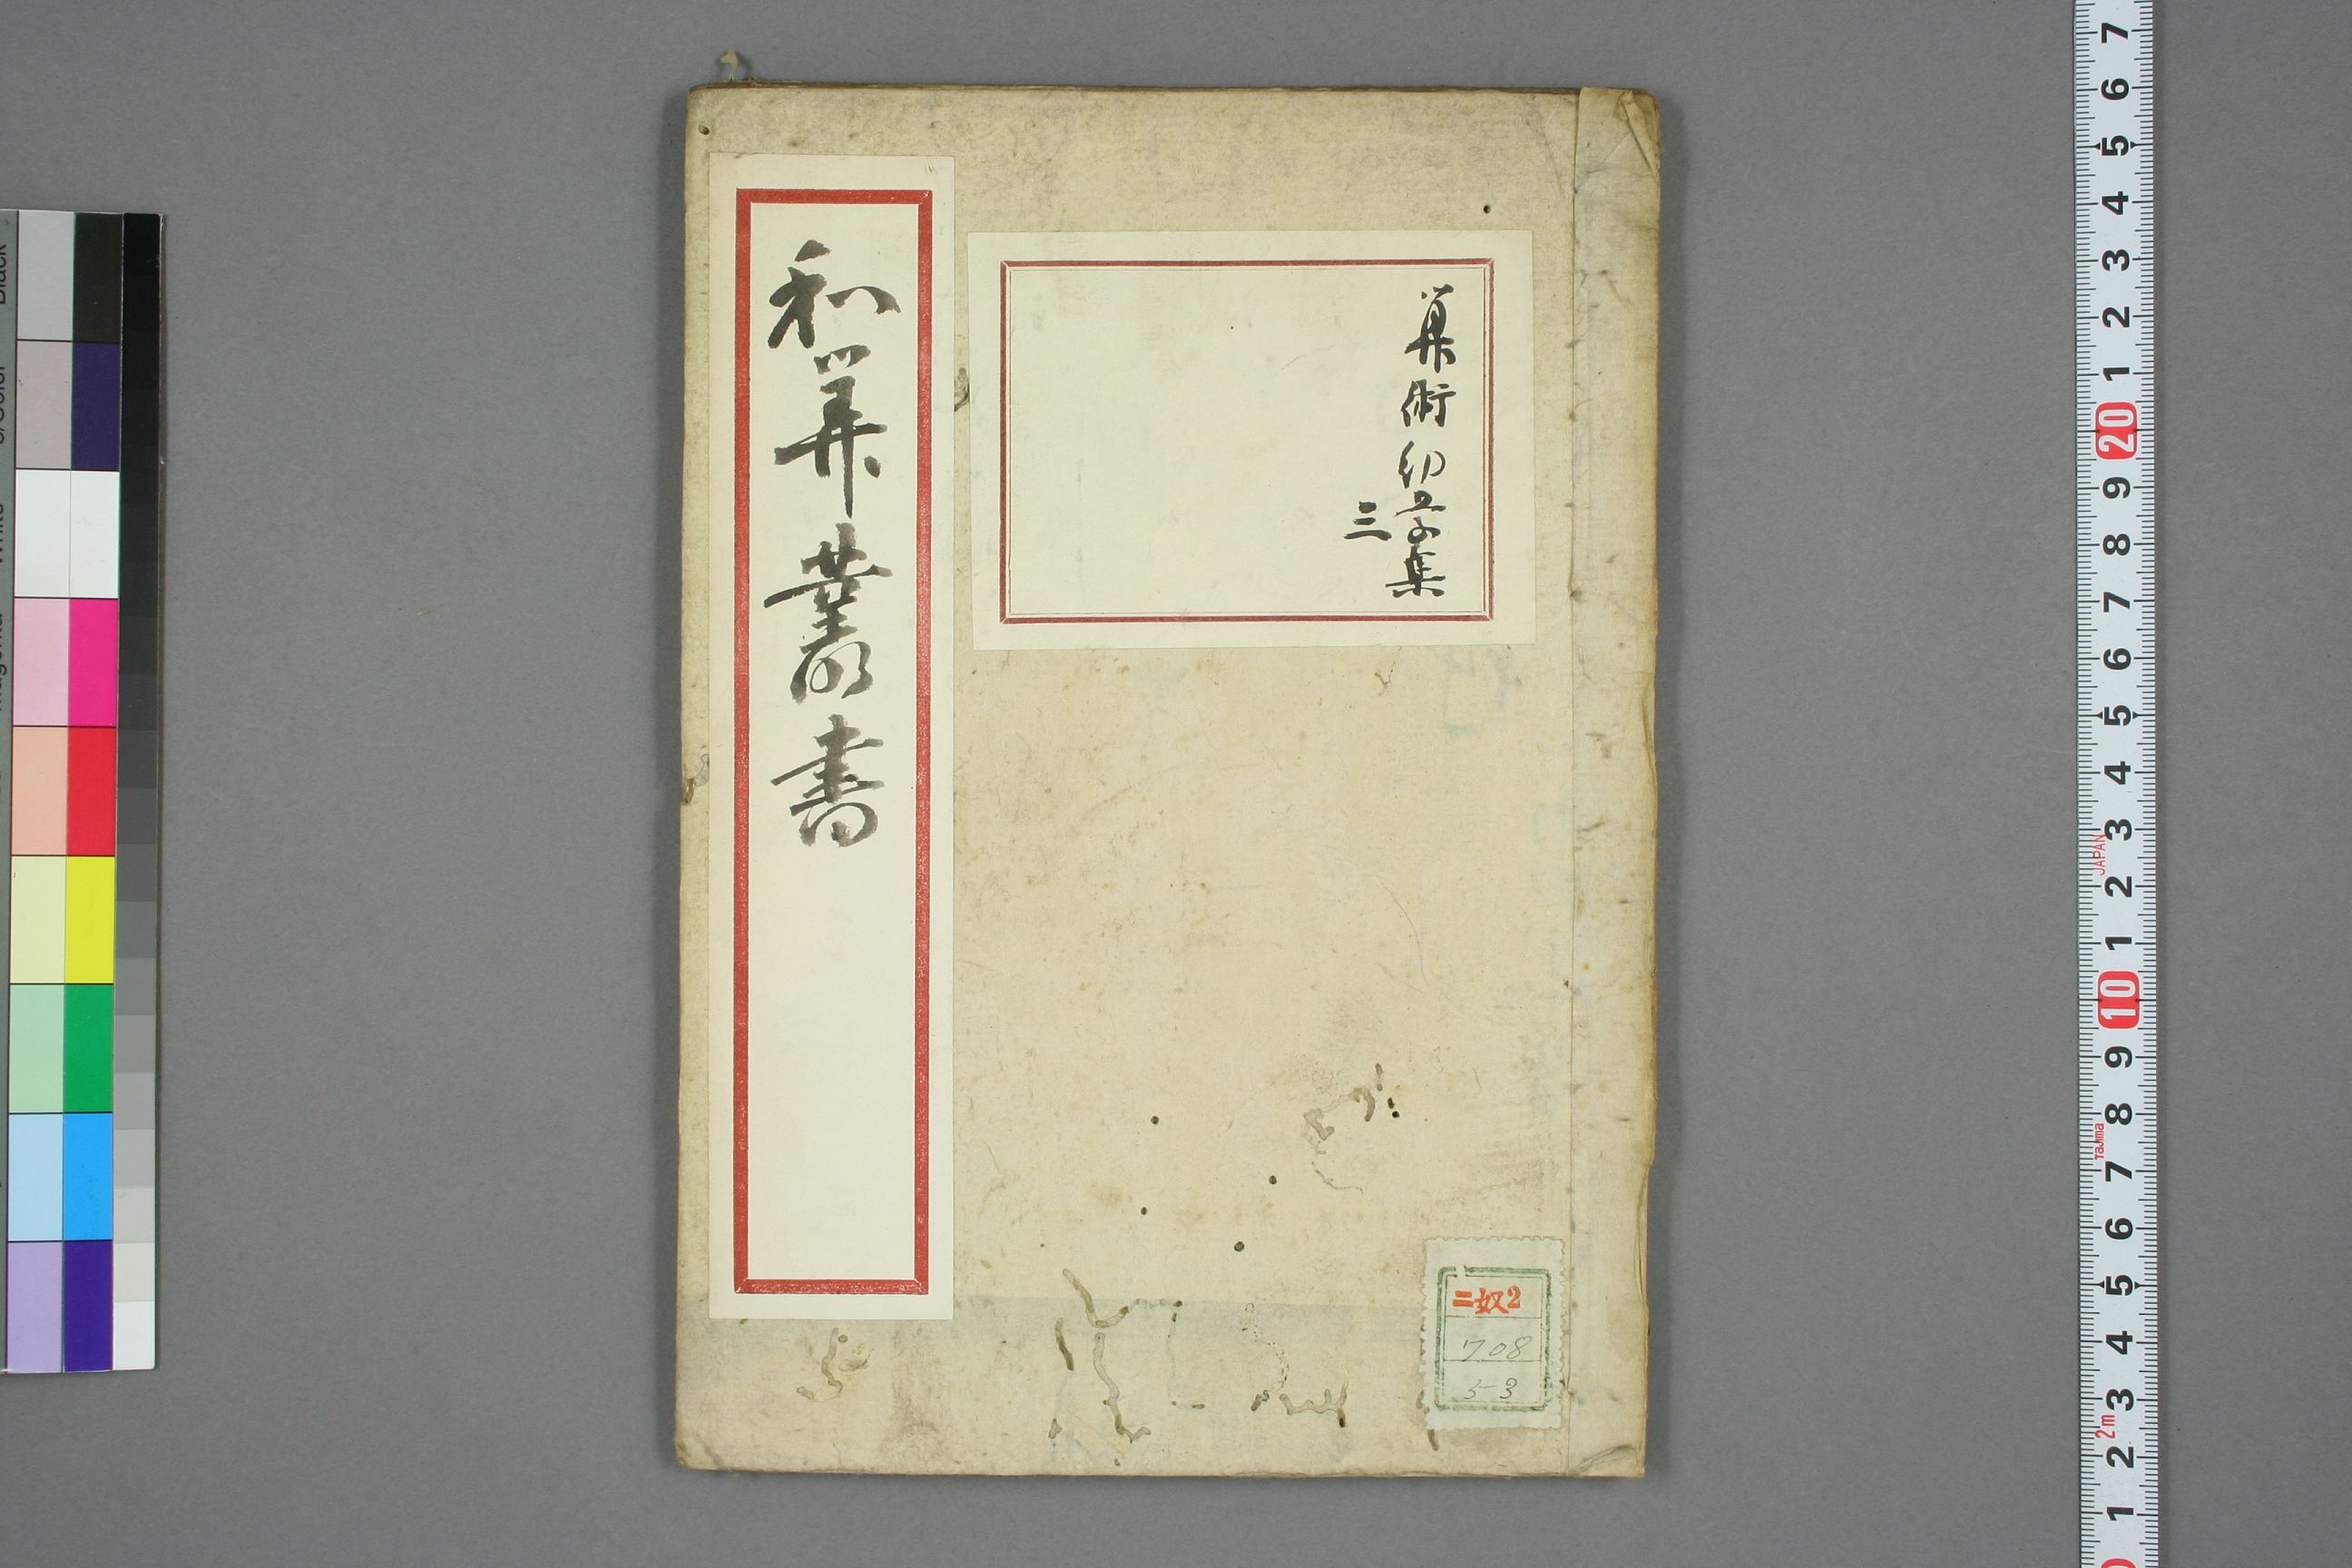 和算叢書
算術幼学集
三
二奴2
708
53
7
6
5
4
3
2
1
20
9
8
7
6
5
4
3
2
1
10
9
8
7
6
5
4
3
2
1
JAPAN
Tajima
2m
Black